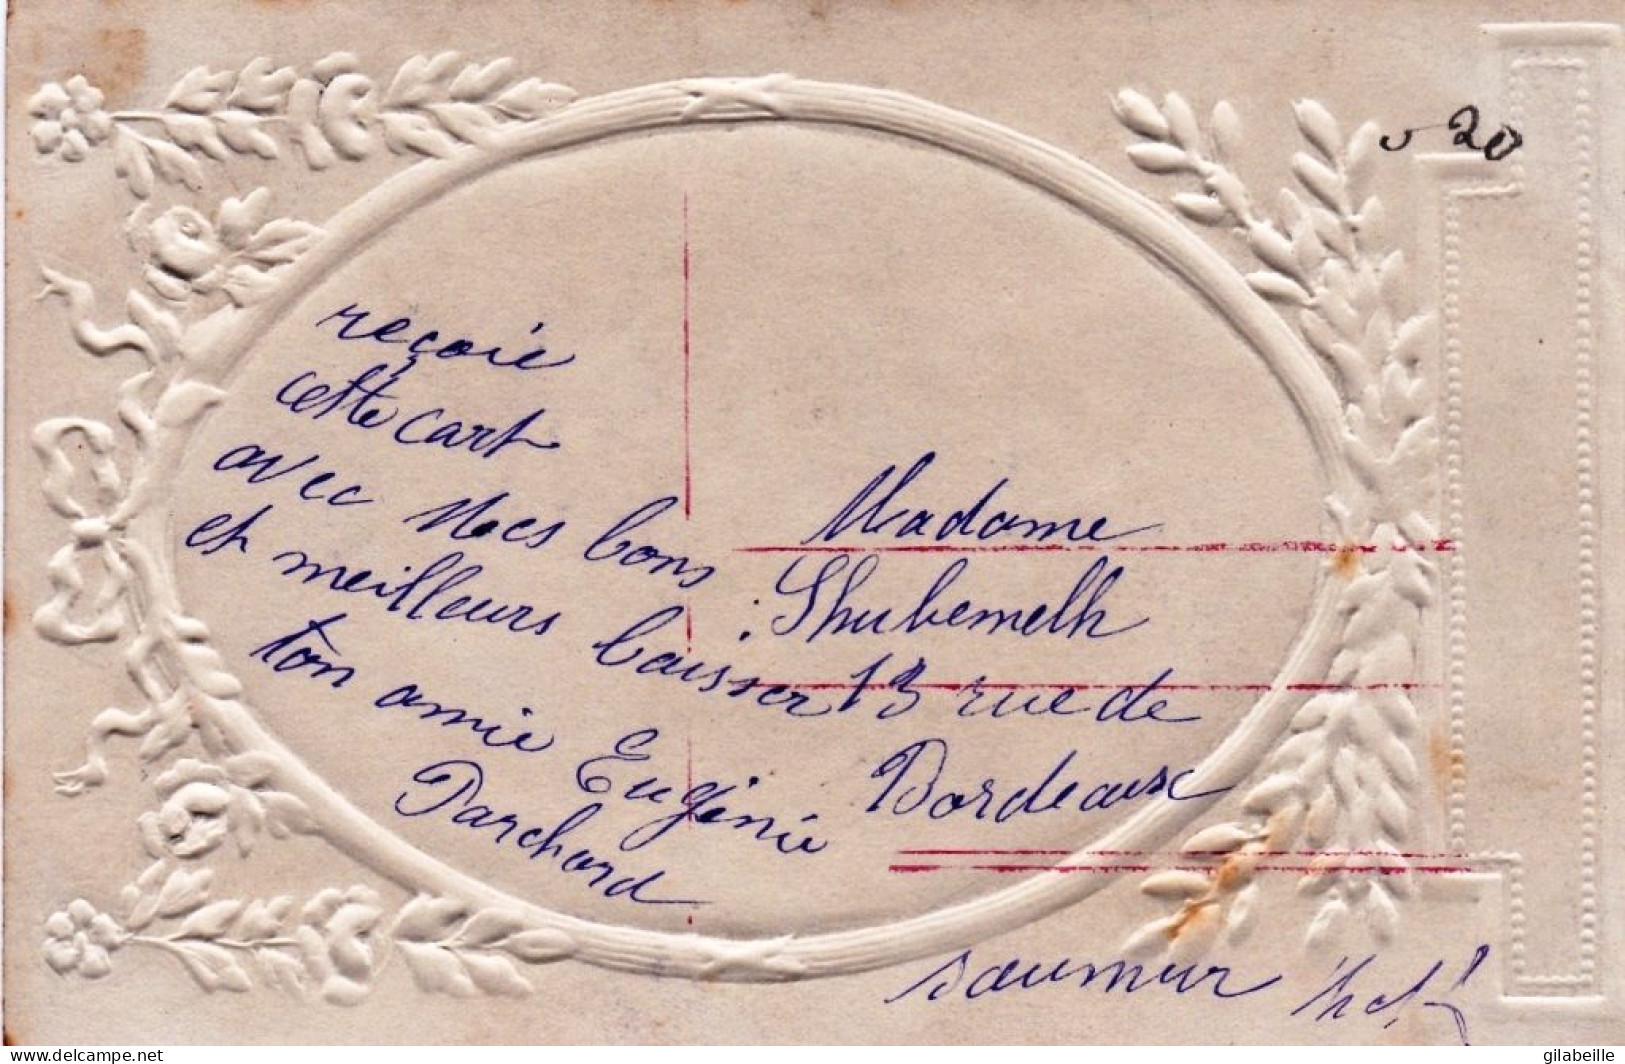 20
reçoie
cette cart
avec Mes bons
et meilleurs baisser
ton amie Eugénie
Parchard
Madame
Shubemelh
13 rue de
Bordeaux
saumur
delcampe.net
gilabeille